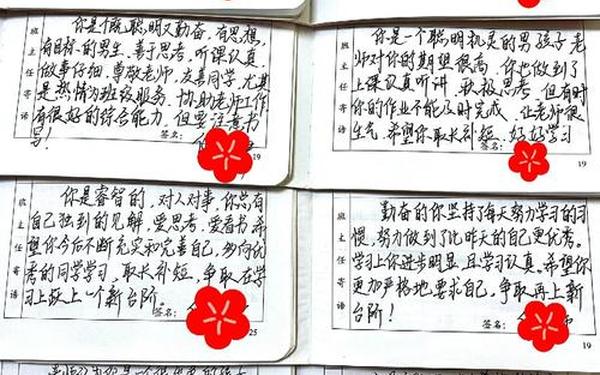 你是个既聪明又勤奋、有思想、
有目标的男生、善于思考、听课认真、
做事仔细、尊敬老师、友善同学、尤其
是热情为班级服务、协助老师工作
有很好的综合能力、但要注意书
写!
班主任寄语
签名:
19
你是一个聪明机灵的男孩子老
师对你的期望很高、你也做到了
上课认真听讲、积极思考、但有时
你的作业不能及时完成、让老师很
生气、希望你取长补短、好好学习
班主任寄语
签名:
19
你是睿智的,对人对事,你总有
自己独到的见解,爱思考、爱看书希
望你今后不断充实和完善自己,多向优
秀的同学学习,取长补短,争取在学
习上跃上一个新台阶。
班主任寄语
签名:
25
勤奋的你坚持了每天努力学习的习
惯,努力做到了比昨天的自己更优秀。
学习上你进步明显且学习认真。希望你
更加严格地要求自己,争取再上新
台阶!
班主任寄语
签名: